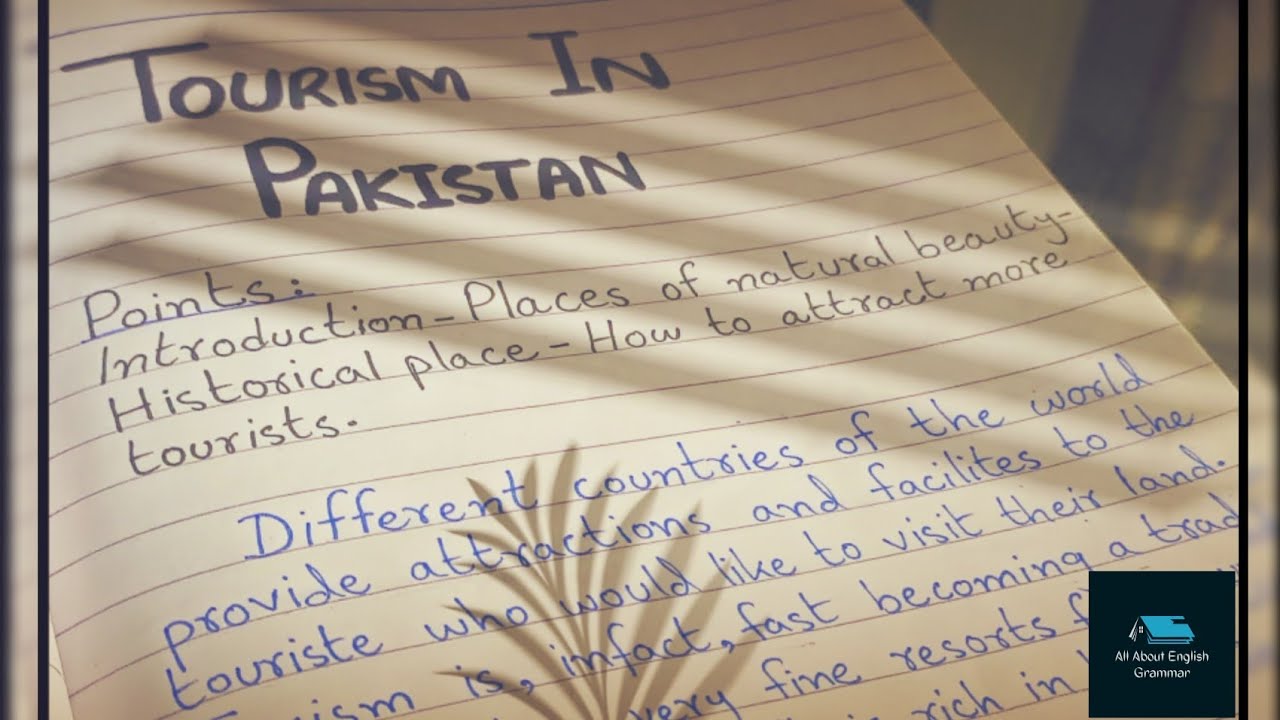 TOURISM IN
PAKISTAN
Points:
Introduction - Places of natural beauty-
Historical place - How to attract more
tourists.
Different countries of the world
provide attractions and facilites to the
touriste who would like to visit their land.
is, infact, fast becoming a trad
very fine resorts
rich in
All About English
Grammar